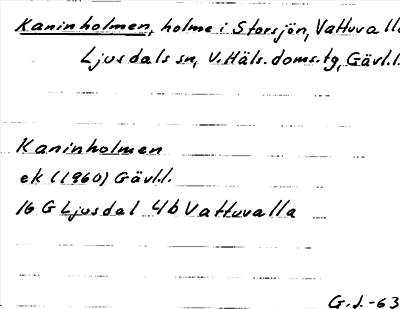 Kaninholmen, holme i Storsjön, Vattuvalla
Ljusdals sn, V. Häls. doms.tg, Gävl.l.
Kaninholmen
ek (1960) Gävl.l.
16 G Ljusdal 4b Vattuvalla
G.J.-63